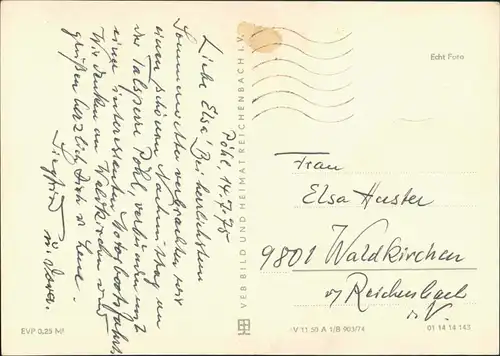 Pöhl, 14.7.75
Liebe Elsa! Bei herrlichstem
Sommerwetter verbrachten wir
einen schönen Nachmittag an
der Talsperre Pöhl, verbunden mit
einer interessanten Motorbootfahrt.
Wir denken an Waldkirchen und
grüßen herzlich Dich u. Lene.
Siegfried
u. Dora.
EVP 0,25 M
VEB BILD UND HEIMAT REICHENBACH I. V.
Echt Foto
Frau
Elsa Huster
9801 Waldkirchen
ü/ Reichenbach
i. V.
V 11 50 A 1/B 903/74
01 14 14 143